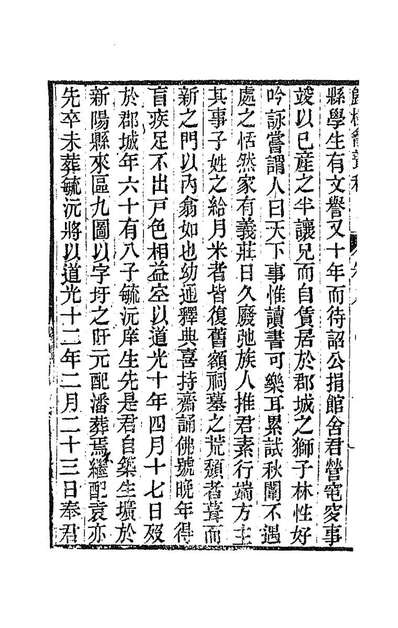 縣學生有文譽又十年而待詔公捐館舍君營窀穸事
竣以已產之半讓兄而自賃居於郡城之獅子林性好
吟詠嘗謂人曰天下事惟讀書可樂耳累試秋闈不遇
處之恬然家有義莊日久廢弛族人推君素行端方主
其事子姓之給月米者皆復舊額祠墓之荒頹者葺而
新之門以內翕如也幼通釋典喜持齋誦佛號晚年得
盲疾足不出戶色相益空以道光十年四月十七日歿
於郡城年六十有八子毓沅庠生先是君自築生壙於
新陽縣來區九圖以字圩之阡元配潘葬焉繼配袁亦
先卒未葬毓沅將以道光十二年二月二十三日奉君